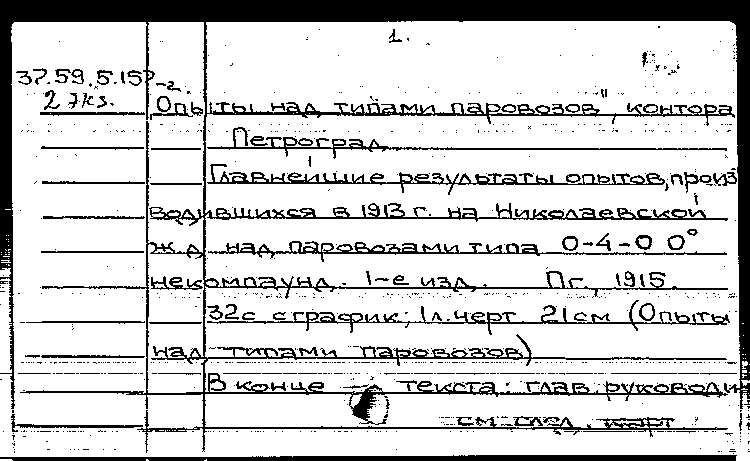 1.
37.59.5.15?-2.
2 экз.
„Опыты над типами паровозов", контора
Петроград
Главнейшие результаты опытов, произ
водившихся в 1913 г. на Николаевской
ж.д. над паровозами типа 0-4-0 0°
некомпаунд. 1-е изд. Пг., 1915.
32с с график; 1л. черт 21см (Опыты
над типами паровозов)
В конце текста: глав. руководи
см след. карт